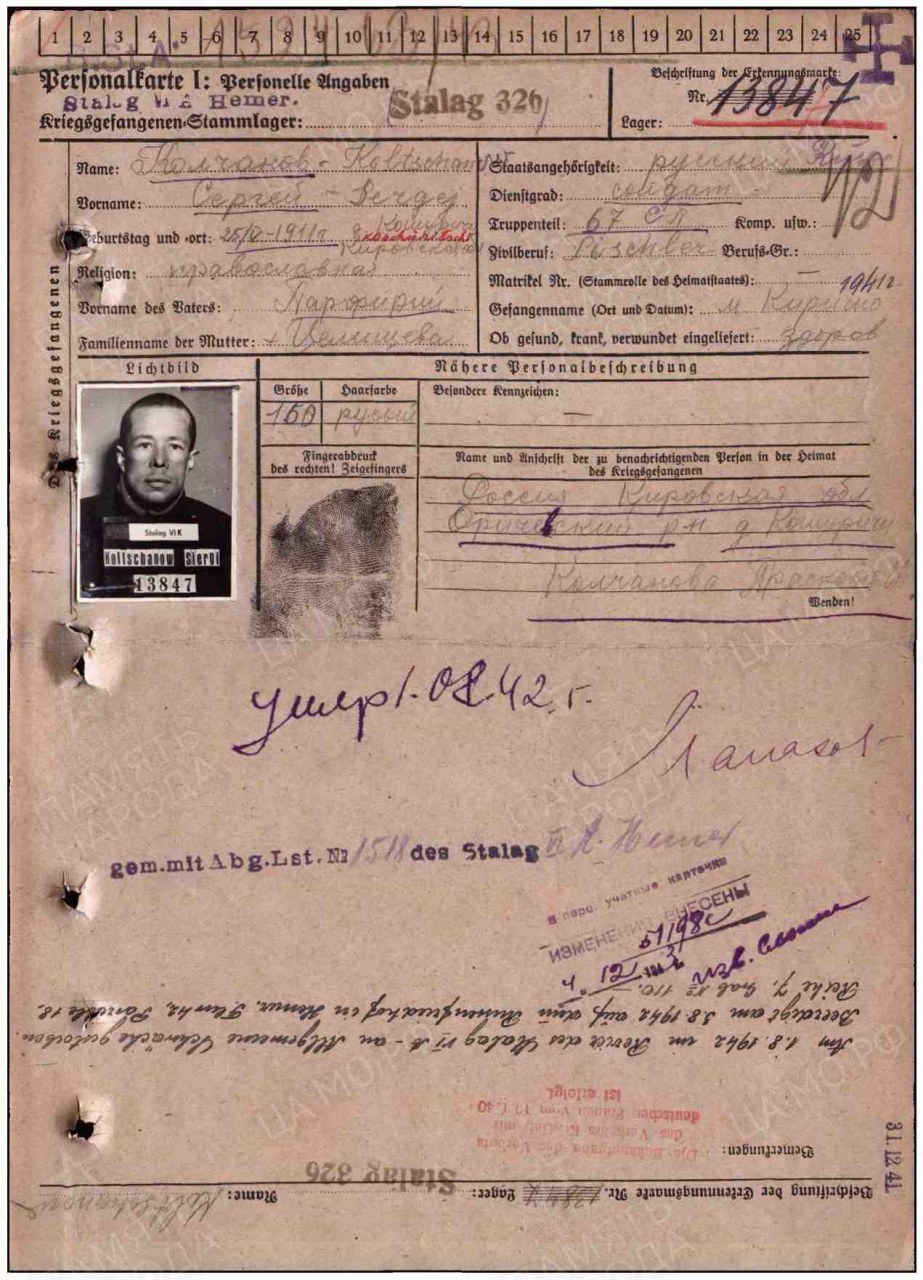 1 2 3 4 5 6 7 8 9 10 11 12 13 14 15 16 17 18 19 20 21 22 23 24 25
Personalkarte I: Personelle Angaben
Stalag VI A Hemer.
Kriegsgefangenen-Stammlager: Stalag 326
Beschriftung der Erkennungsmarke:
Nr. 13847
Lager:
Des Kriegsgefangenen
Name: Колчанов - Koltschanow
Vorname: Сергей - Sergej
Geburtstag und -ort: 25/V-1911г Кошуричи
Кировская
Religion: православная
Vorname des Vaters: Парфирий
Familienname der Mutter: Целищева
Staatsangehörigkeit: русский
Dienstgrad: солдат
Truppenteil: 67 СП Komp. usw.:
Zivilberuf: Tischler Berufs-Gr.:
Matrikel Nr. (Stammrolle des Heimatstaates): -
1941г
Gefangenname (Ort und Datum): м Киришо
Ob gesund, krank, verwundet eingeliefert: здоров
Lichtbild
Nähere Personalbeschreibung
Größe Haarfarbe Besondere Kennzeichen:
160 русый -
Fingerabdruck
des rechten! Zeigefingers
Name und Anschrift der zu benachrichtigenden Person in der Heimat
des Kriegsgefangenen
Россия Кировская обл
Оричевский р-н д Кошуричи
Колчанова Прасковья
Wenden!
Stalag VI K
Koltschanow Siergi
13847
умер 1.08.42 г.
gem. mit Abg.Lst. № 1518 des Stalag VI A. Hemer
В перс. учетные карточки
ИЗМЕНЕНИЯ ВНЕСЕНЫ
Am 1.8.1942 im Revier des Stalag VI A - an Allgemeine Schwäche gestorben
Beerdigt am 3.8.1942 auf dem Russenfriedhof in Hemer, Parzelle 18,
Reihe 7, Grab № 110.
Bemerkungen:
Die Bekanntgabe des Verbots
des Verkehrs Kr.Gef. mit
deutschen Frauen vom 10.1.40
ist erfolgt.
31.12.41
Beschriftung der Erkennungsmarke Nr. 13847 Lager: Stalag 326 Name: Koltschanow
ПАМЯТЬ НАРОДА
ЦАМО.РФ